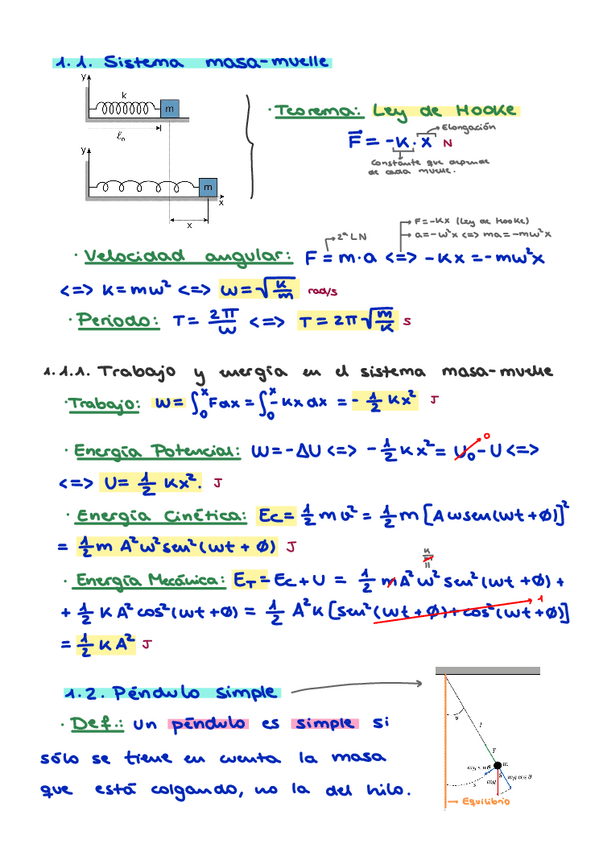 1.1. Sistema masa-muelle
y
k
m
ℓn
y
m
x
x
· Teorema: Ley de Hooke
F⃗ = -K · x N
Elongación
Constante que depende
de cada muelle.
F=-Kx (Ley de Hooke)
2ª LN
a=-ω²x <=> ma=-mω²x
· Velocidad angular: F = m·a <=> -Kx = -mω²x
<=> K=mω² <=> ω=√(K/m) rad/s
· Periodo: T= 2π/ω <=> T= 2π√(m/K) s
1.1.1. Trabajo y energía en el sistema masa-muelle
· Trabajo: W= ∫₀ˣ Fdx = ∫₀ˣ -Kx dx = - 1/2 Kx² J
· Energía Potencial: W=-ΔU <=> - 1/2 Kx² = U₀ - U <=>
0
<=> U= 1/2 Kx². J
· Energía Cinética: Ec= 1/2 mv² = 1/2 m [Aωsen(ωt+Ø)]²
= 1/2 m A²ω²sen²(ωt + Ø) J
K
=
· Energía Mecánica: E_T=Ec+U = 1/2 mA²ω²sen²(ωt +Ø) +
+ 1/2 KA²cos²(ωt+Ø) = 1/2 A²K [sen²(ωt+Ø)+cos²(ωt+Ø)]
1
= 1/2 KA² J
1.2. Péndulo simple
· Def.: Un péndulo es simple si
sólo se tiene en cuenta la masa
que está colgando, no la del hilo.
l
T
m
mg
Equilibrio